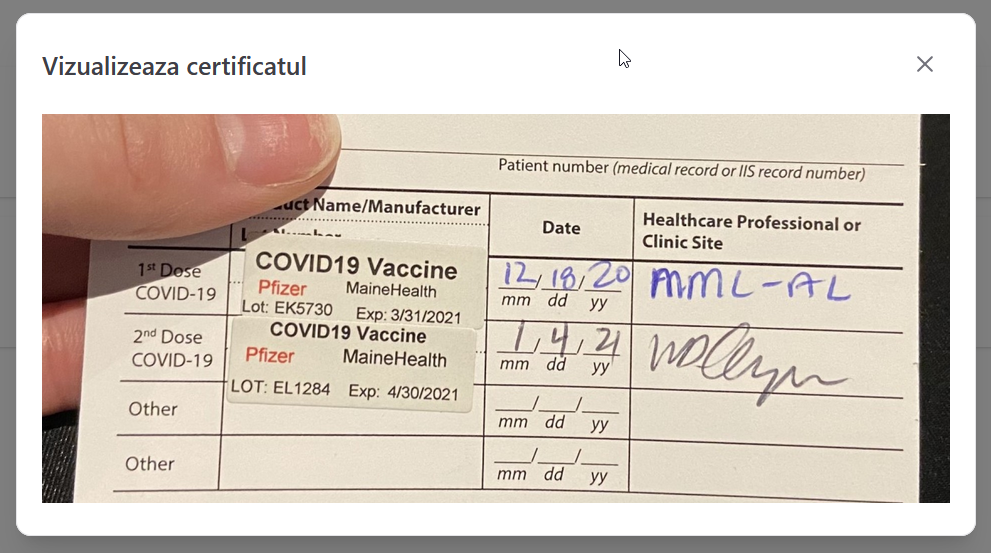 Vizualizeaza certificatul
Patient number (medical record or IIS record number)
uct Name/Manufacturer
Date
Healthcare Professional or
Clinic Site
1st Dose
COVID-19
COVID19 Vaccine
Pfizer MaineHealth
Lot: EK5730 Exp: 3/31/2021
12/18/20
mm dd yy
MML-AL
2nd Dose
COVID-19
COVID19 Vaccine
Pfizer MaineHealth
LOT: EL1284 Exp: 4/30/2021
1/4/21
mm dd yy
Other
__/__/__
mm dd yy
Other
__/__/__
mm dd yy